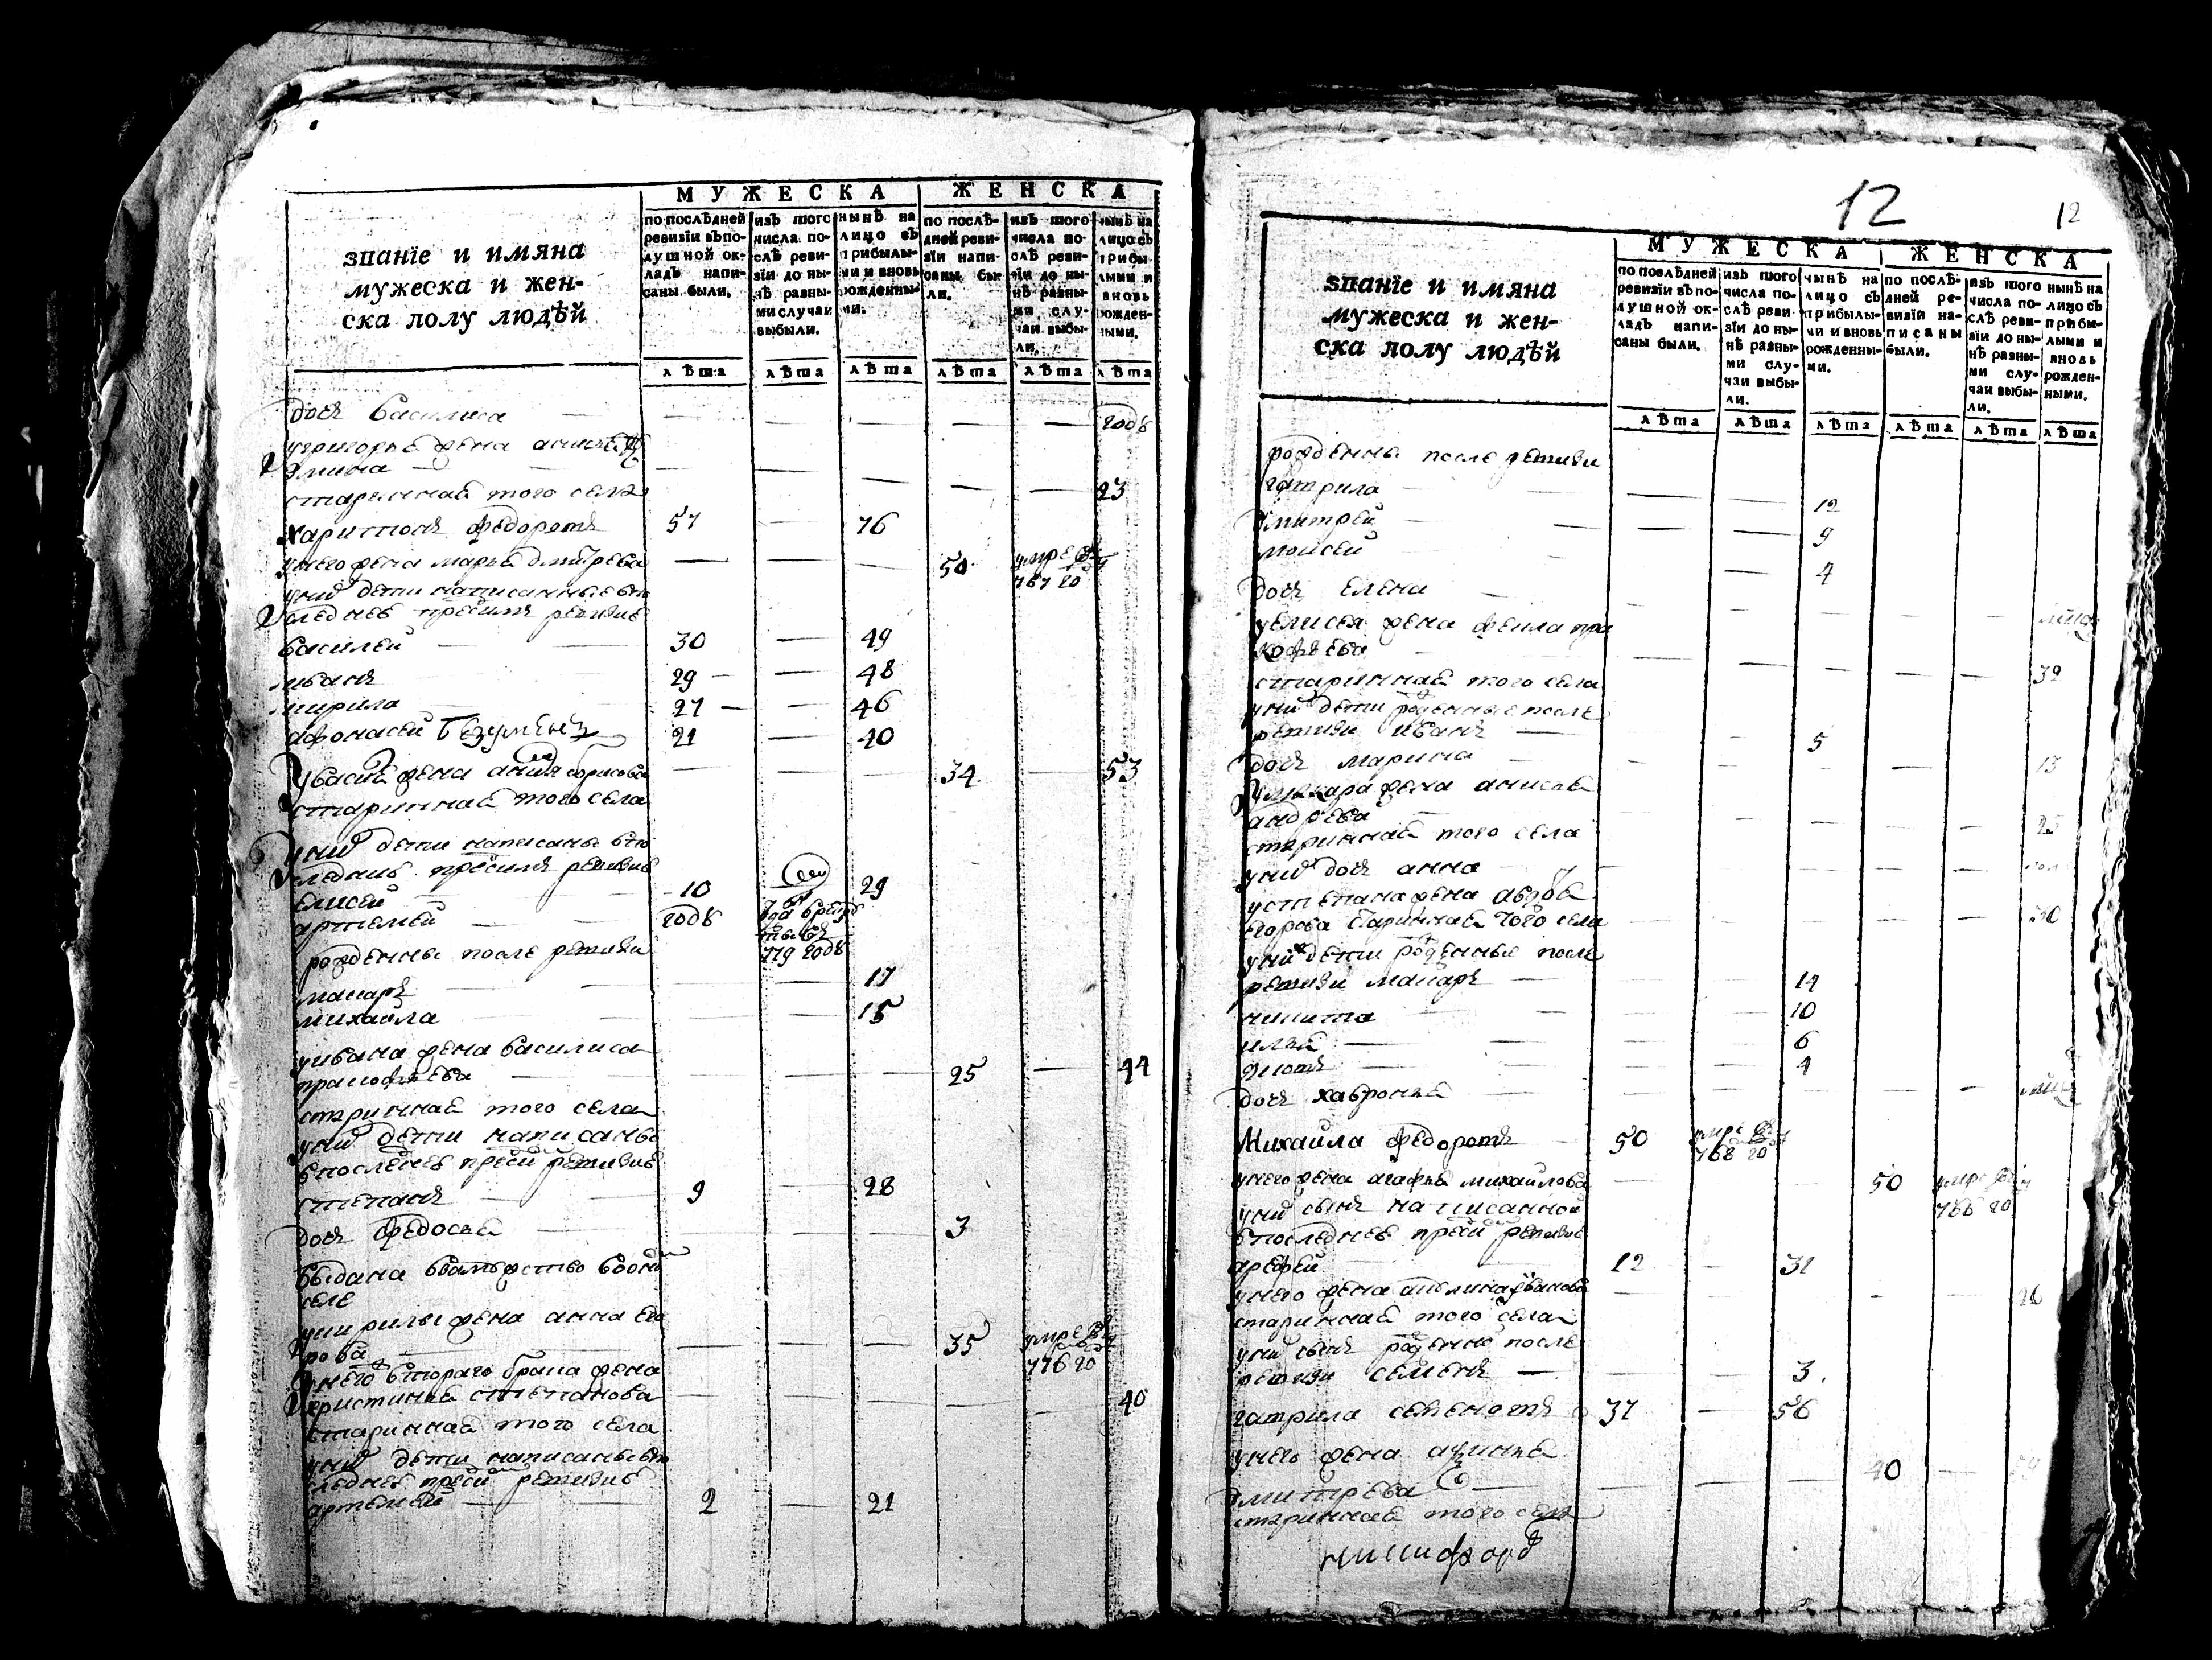 МУЖЕСКА ЖЕНСКА
званїе и имяна
мужеска и жен-
ска полу людѣй
по послѣдней
ревизіи въ по-
душной ок-
ладъ напи-
саны были.
изъ того
числа по-
слѣ реви-
зіи до ны-
нѣ разны-
ми случаи
выбыли.
нынѣ на
лицо съ
прибылы-
ми и вновь
рожденны-
ми.
по послѣ-
дней реви-
зіи напи-
саны бы-
ли.
изъ того
числа по-
слѣ реви-
зіи до ны-
нѣ разны-
ми слу-
чаи выбы-
ли.
нынѣ на
лицо съ
прибы-
лыми и
вновь
рожден-
ными.
лѣта лѣта лѣта лѣта лѣта лѣта
дочь василиса — — — — — годъ
угригорья жена анисья
стариннай того села — — 23
харитонъ федоровъ 57 — 76
унего жена марья дмитрева — — — 50 умре въ
767 го
уних дети написанные впо
следней пред сим ревизие
василей — 30 — 49
иванъ 29 — 48
кирила 27 — 46
афонасей 21 — 40
увасил жена борисова — — — 34 — 53
стариннай того села
уних дети написаны впо
следней пред сим ревизие
елисей — 10 29
артемей — годъ
779 годъ
рожденны после ревизии
макаръ — — — 17
михайла — — — 15
уивана жена василиса
пракофьева — — — 25 — 44
стариннай того села
уних дети написаны
впоследней пред сим ревизие
степанъ — 9 — 28
дочь федосья — — — 3
выдана взамужство водном
селе
укирилы жена анна его
рова — — — — 35 умре въ
776 го
унего втораго брака жена
христинья степанова — — — — — 40
стариннай того села
уних дети написаны впо
следней пред сим ревизие
артемей — 2 — 21
12 12
МУЖЕСКА ЖЕНСКА
званїе и имяна
мужеска и жен-
ска полу людѣй
по послѣдней
ревизіи въ по-
душной ок-
ладъ напи-
саны были.
изъ того
числа по-
слѣ реви-
зіи до ны-
нѣ разны-
ми слу-
чаи выбы-
ли.
нынѣ на
лицо съ
прибылы-
ми и вновь
рожденны-
ми.
по послѣ-
дней ре-
визіи на-
писаны
были.
изъ того
числа по-
слѣ реви-
зіи до ны-
нѣ разны-
ми слу-
чаи выбы-
ли.
нынѣ на
лицо съ
прибы-
лыми и
вновь
рожден-
ными.
лѣта лѣта лѣта лѣта лѣта лѣта
рожденны после ревизии
гаврила — — — 12
дмитрей — — — 9
моисей — — 4
дочь елена — — — —
уелисея жена фекла пра
кофьева — — — — — 39
стариннай того села
уних дети рожденные после
ревизии иванъ — — 5
дочь марина — — — — 13
умакара жена анисья
андрева — — — — 25
стариннай того села
уних дочь анна — — — —
устепана жена авдотья
егорова стариннай того села — — — — 30
уних дети рожденные после
ревизии макаръ — — — 14
никита — — — 10
илья — — — 6
— — 4
дочь хавронья — — — — —
Михайла федоровъ — 50 умре въ
768 го
унего жена агафья михайлова — — — 50 умре въ
766 го
уних сынъ написанной
впоследней пред сим ревизие
арефей 12 — 31
унего жена иванова — — — —
стариннай того села
уних сынъ рожденной после
ревизии семенъ — — — 3.
гаврила семеновъ 37 — 56
унего жена аксинья
дмитрева — — — 40 —
стариннай того села